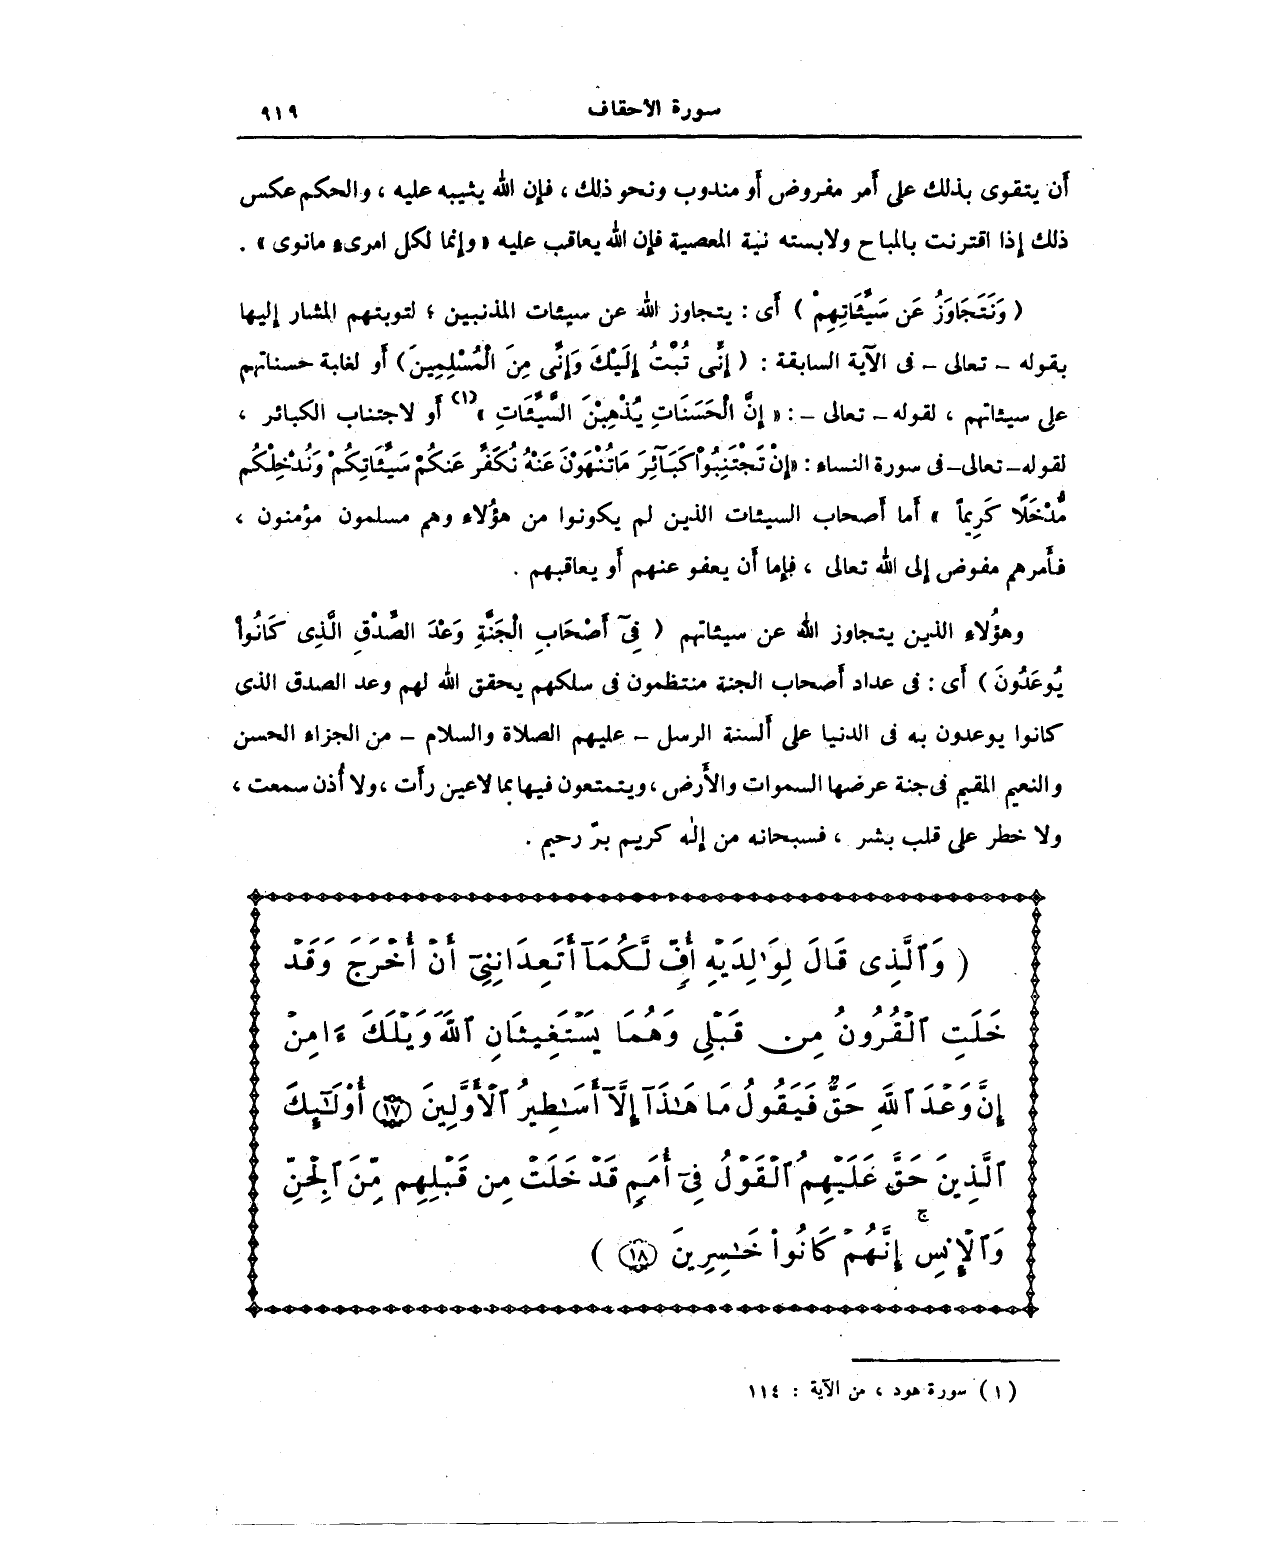 سورة الأحقاف ٩١٩
أن يتقوى بذلك على أمر مفروض أو مندوب ونحو ذلك ، فإن الله يثيبه عليه ، والحكم عكس
ذلك إذا اقترنت بالمباح ولابسته نية المعصية فإن الله يعاقب عليه « وإنما لكل امرىء مانوى » .
( وَنَتَجَاوَزُ عَن سَيِّئَاتِهِمْ ) أى : يتجاوز الله عن سيئات المذنبين ؛ لتوبتهم المشار إليها
بقوله - تعالى - فى الآية السابقة : ( إِنِّى تُبْتُ إِلَيْكَ وَإِنِّى مِنَ الْمُسْلِمِينَ ) أو لغابة حسناتهم
على سيئاتهم ، لقوله - تعالى - : « إِنَّ الْحَسَنَاتِ يُذْهِبْنَ السَّيِّئَاتِ » (١) أو لاجتناب الكبائر ،
لقوله - تعالى - فى سورة النساء : « إِنْ تَجْتَنِبُوا كَبَآئِرَ مَاتُنْهَوْنَ عَنْهُ نُكَفِّرْ عَنكُمْ سَيِّئَاتِكُمْ وَنُدْخِلْكُم
مُّدْخَلًا كَرِيماً » أما أصحاب السيئات الذين لم يكونوا من هؤلاء وهم مسلمون مؤمنون ،
فأمرهم مفوض إلى الله تعالى ، فإما أن يعفو عنهم أو يعاقبهم .
وهؤلاء الذين يتجاوز الله عن سيئاتهم ( فِىٓ أَصْحَابِ الْجَنَّةِ وَعْدَ الصِّدْقِ الَّذِى كَانُوا
يُوعَدُونَ ) أى : فى عداد أصحاب الجنة منتظمون فى سلكهم يحقق الله لهم وعد الصدق الذى
كانوا يوعدون به فى الدنيا على ألسنة الرسل - عليهم الصلاة والسلام - من الجزاء الحسن
والنعيم المقيم فى جنة عرضها السموات والأرض ، ويتمتعون فيها بما لاعين رأت ، ولا أذن سمعت ،
ولا خطر على قلب بشر ، فسبحانه من إلٰه كريم برّ رحيم .
( وَٱلَّذِى قَالَ لِوَٰلِدَيْهِ أُفٍّ لَّكُمَآ أَتَعِدَانِنِىٓ أَنْ أُخْرَجَ وَقَدْ
خَلَتِ ٱلْقُرُونُ مِن قَبْلِى وَهُمَا يَسْتَغِيثَانِ ٱللَّهَ وَيْلَكَ ءَامِنْ
إِنَّ وَعْدَ ٱللَّهِ حَقٌّ فَيَقُولُ مَا هَٰذَآ إِلَّآ أَسَٰطِيرُ ٱلْأَوَّلِينَ (١٧) أُوْلَٰٓئِكَ
ٱلَّذِينَ حَقَّ عَلَيْهِمُ ٱلْقَوْلُ فِىٓ أُمَمٍ قَدْ خَلَتْ مِن قَبْلِهِم مِّنَ ٱلْجِنِّ
وَٱلْإِنسِ ۚ إِنَّهُمْ كَانُوا۟ خَٰسِرِينَ (١٨) )
(١) سورة هود ، من الآية : ١١٤